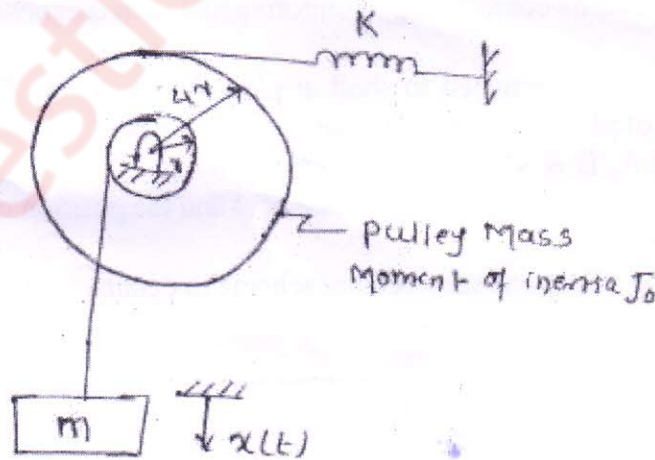 K
4r
r
Pulley Mass
Moment of inertia J₀
m
x(t)